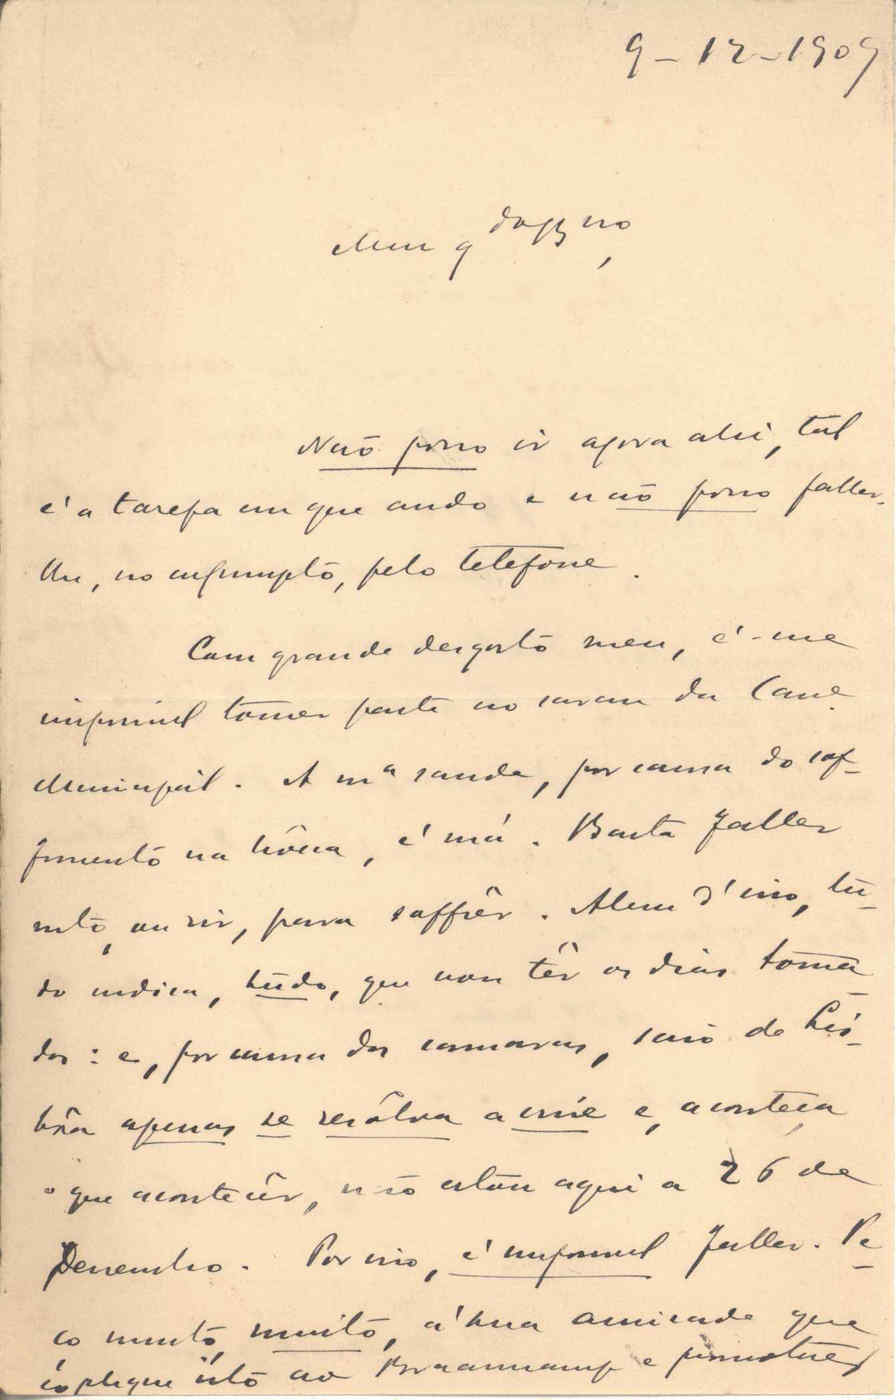 9-12-1909
Meu q
Não posso ir agora ahi, tal
é a tarefa em que ando e não posso faller-
lhe, no assumpto, pelo telefone.
Com grande desgosto meu, é-me
impossivel tomar parte no sarau da Cam.
Municipal. A mª saude, por causa do sof-
frimento na bôca, é má. Basta fallar
muito, ou rir, para soffrêr. Alem d'isso, tu-
do indica, tudo, que vou têr os dias toma-
dos: e, por causa das camaras, saio de Lis-
bôa apenas se resôlva a crise e, aconteça
o que acontecêr, não estou aqui a 26 de
Dezembro. Por isso, é impossivel fallar. Pe-
ço muito, muito, á sua amizade que
explique isto ao Braamcamp e